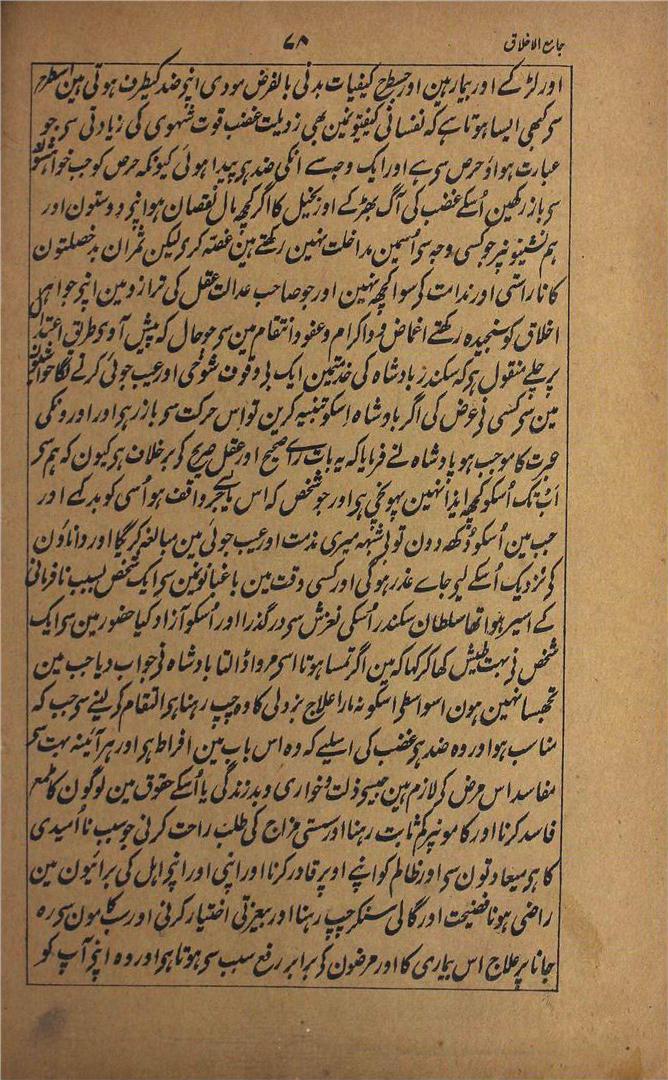 جامع الاخلاق
۷۸
اور لڑکے اور بیمار ہین اور جسطرح کیفیات بدنی بالفرض مودی اپنی ضد کیطرف ہوتی ہین اسطرح
سی کبھی ایسا ہوتا ہے کہ نفسانی کیفیتونمین بھی رذیلت غضب قوت شہوی کی زیادتی سی جو
عبارت ہواؤ حرص سی ہے اور ایک وجہ سے انکی ضد ہی پیدا ہوئی کیونکہ حرص کو جب خواہشون
سی باز رکھین اُسکے غضب کی آگ بھڑکے اور بخیل کا اگر کچھ مال نقصان ہو اپنی دوستون اور
ہم نشینونپر جو کسی وجہ سی اُسمین مداخلت نہین رکھتے ہین غصّہ کری لیکن ثمران بد خصلتون
کا ناراستی اور ندامت کی سوا کچھ نہین اور جو صاحب عدالت عقل کی ترازو مین اپنی جواہر
اخلاق کو سنجیدہ رکھتے اغماض و اکرام و عفو و انتقام مین سی جو حال کہ پیش آوی طریق اعتدال
پر چلے منقول ہی کہ سکندر بادشاہ کی خدمتمین ایک بی وقوف شوخی اور عیب جوئی کرنے لگا خواصون
مین سی کسی نی عرض کی اگر بادشاہ اسکو تنبیہ کرین تو اس حرکت سی باز رہی اور اورونکی
عبرت کا موجب ہو پادشاہ نے فرمایا کہ یہ بات رای صحیح اور عقل صریح کی برخلاف ہی کیون کہ ہم سی
اب تک اُسکو کچھ ایذا نہین پہونچی ہی اور جو شخص کہ اس ماجری پر واقف ہو اُسی کو بد کہے اور
جب مین اُسکو دُکھ دون تو بی شبہہ میری مذمت اور عیب جوئی مین مبالغہ کریگا اور داناؤن
کی نزدیک اُسکے لیی جاے عذر ہوگی اور کسی وقت مین باغیانونمین سی ایک شخص بسبب نافرمانی
کے اسیر ہوا تھا سلطان سکندر اُسکی لغزش سی درگذرا اور اُسکو آزاد کیا حضور مین سی ایک
شخص نی بہت طیش کھا کر کہا کہ مین اگر تمسا ہوتا اسی مرواڈالتا بادشاہ نی جواب دیا جب مین
تجھسا نہین ہون اسواسطی اسکو نہ مارا علاج بزدلی کا وہ چپ رہنا ہی انتقام کرنیسے سی جب کہ
مناسب ہو اور وہ ضد ہی غضب کی اسلیے کہ وہ اس باب مین افراط ہی اور ہر آئینہ بہت سی
مفاسد اس مرض کی لازم ہین جیسی ذلت و خواری و بد زندگی یا اُسکے حقوق مین لوگون کا طمع
فاسد کرنا اور کامونپر کم ثابت رہنا اور سستی مزاج کی طلب راحت کرنی جو سبب نا اُمیدی
کا ہی سعادتون سی اور ظالم کو اپنے اوپر قادر کرنا اور اپنی اور اپنی اہل کی برائیون مین
راضی ہونا فضیحت اور گالی سنکر چپ رہنا اور بیعزتی اختیار کرنی اور سب کامون سی رہ
جانا پر علاج اس بیماری کا اور مرضون کی برابر رفع سبب سی ہوتا ہی اور وہ اپنی آپ کو